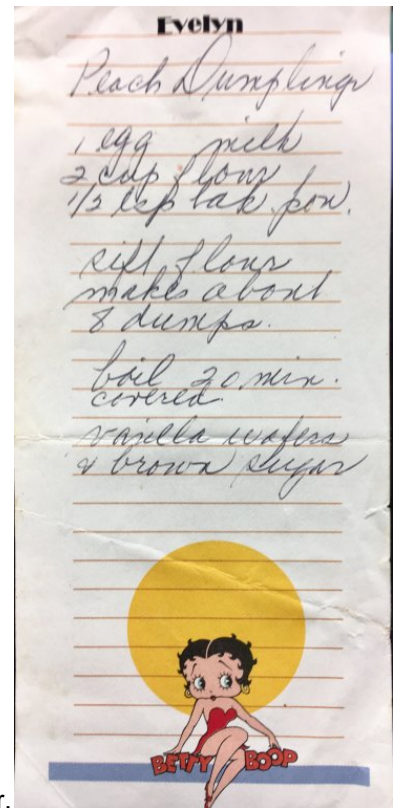 Evelyn
Peach Dumplings
1 egg milk
2 cup flour
1/2 tsp bak pow.
sift flour
makes about
8 dumps.
boil 20 min.
covered.
vanilla wafers
& brown sugar
BETTY BOOP
r.